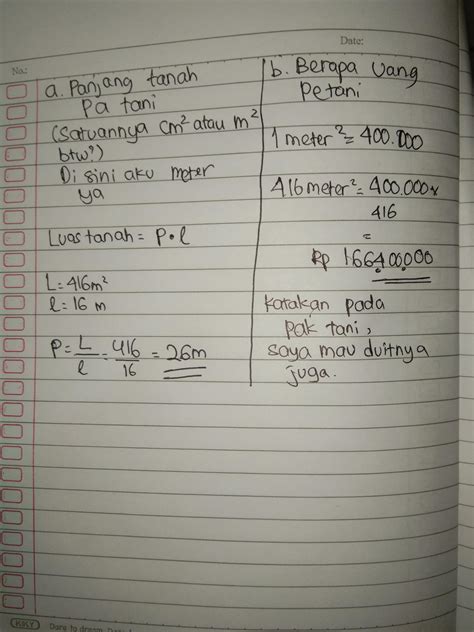 No.:
Date:
a. Panjang tanah
Pa tani
(Satuannya cm² atau m²
btw?)
Di sini aku meter
ya
Luas tanah = P • l
L = 416m²
l = 16 m
P = L/l = 416/16 = 26m
b. Berapa Uang
Petani
1 meter² = 400.000
416 meter² = 400.000 x
416
=
Rp 166.400.000
Katakan pada
pak tani,
saya mau duitnya
juga.
KKY Dare to dream.